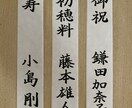 御祝
鎌田加奈子
初穂料
藤本雄
寿
小島剛